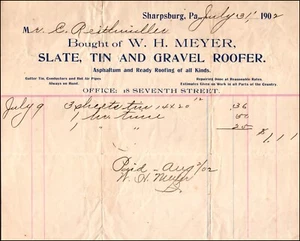 Sharpsburg, Pa. July 31st 1902
Mr. C. Reithmiller
Bought of W. H. MEYER,
SLATE, TIN AND GRAVEL ROOFER.
Asphaltum and Ready Roofing of all Kinds.
Gutter Tin, Conductors and Hot Air Pipes Always on Hand.
Repairing Done at Reasonable Rates. Estimates Given on Work in all Parts of the Country.
OFFICE: 18 SEVENTH STREET.
July 9 3 sheets tin 14x20 36
1 hr time
1 " "
$1.11
Paid Aug 2/02
W. H. Meyer